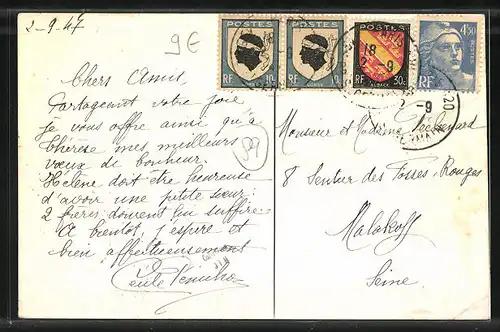 2-9-47
9€
Chers Amis,
Partageant votre joie
je vous offre ainsi qu'à
Thérèse mes meilleurs
vœux de bonheur.
Hélène doit être heureuse
d'avoir une petite sœur.
2 frères doivent lui suffire.
A bientôt, j'espère et
bien affectueusement
59
POSTES
RF 10c
CORSE
POSTES
RF 10c
CORSE
POSTES
RF 30c
ALSACE
4F50
POSTES
RF
18
2-9
2-9
Monsieur et Madame
8 Sentier des Fosses-Rouges
Malakoff
Seine.